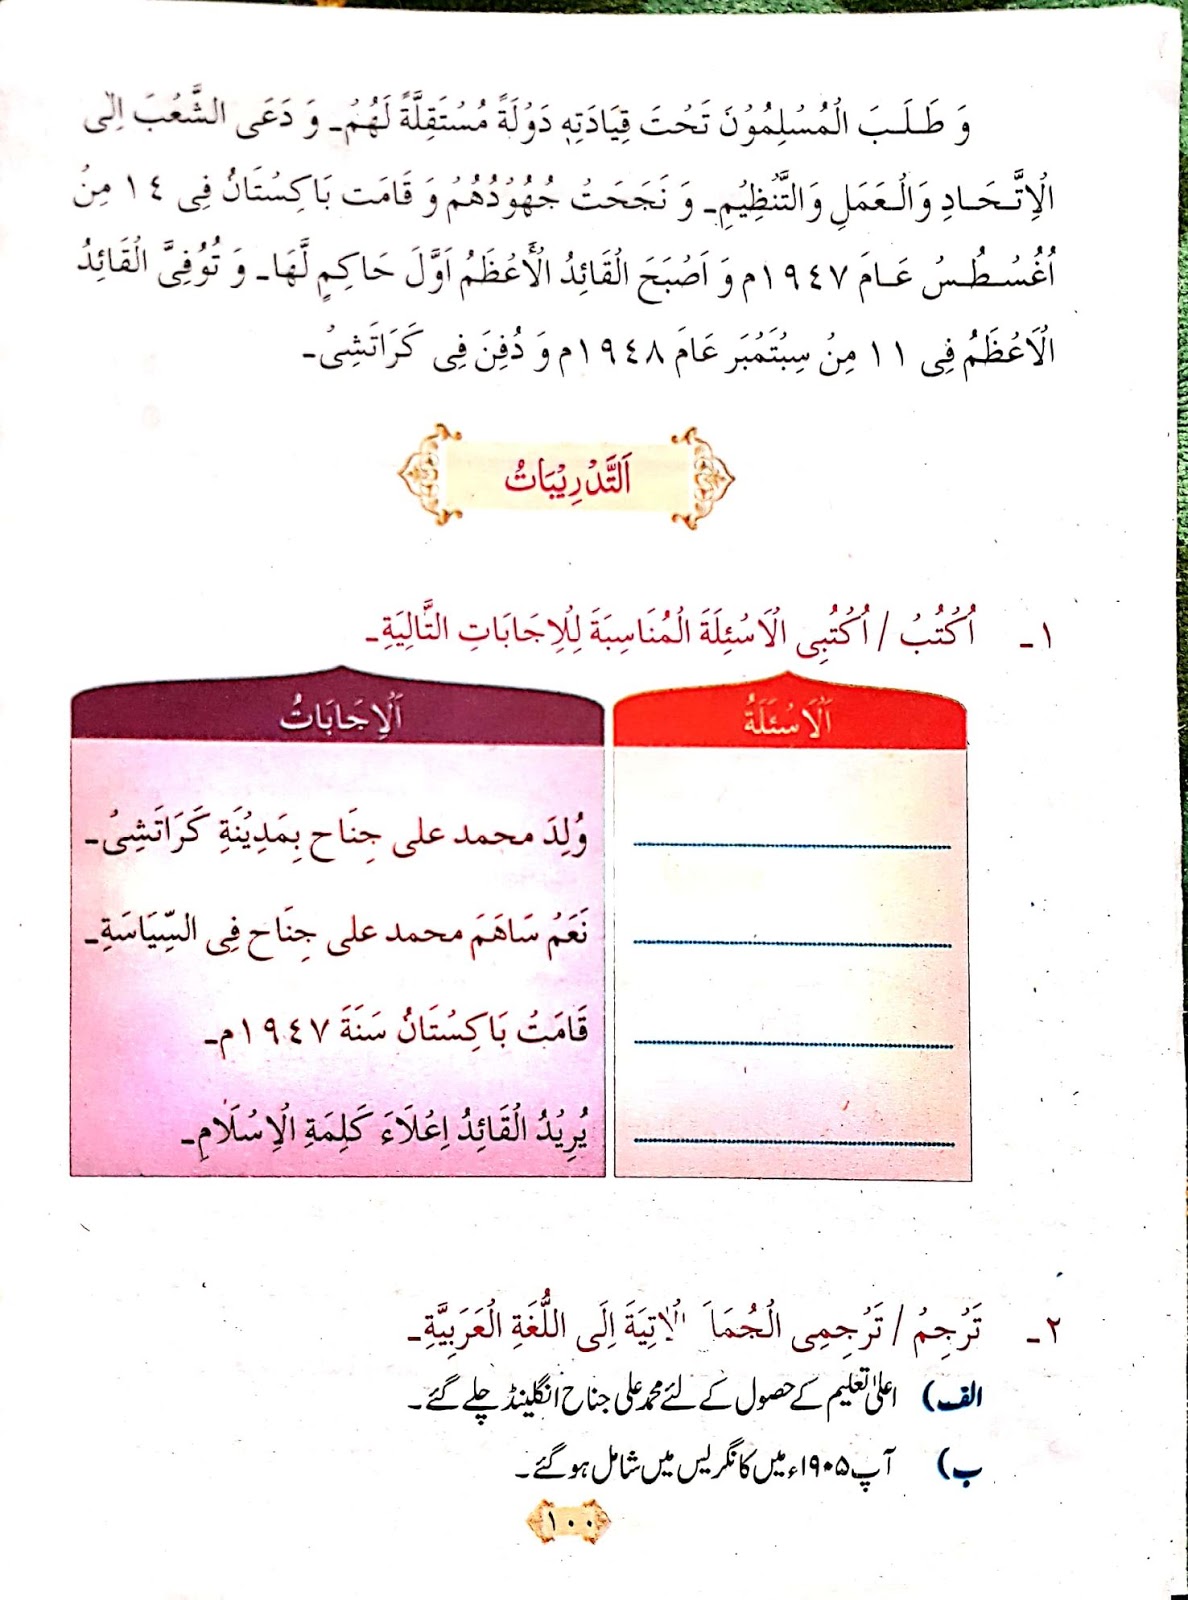 وَ طَلَبَ الْمُسْلِمُوْنَ تَحْتَ قِيَادَتِهٖ دَوْلَةً مُسْتَقِلَّةً لَهُمْ۔ وَ دَعَى الشَّعْبَ اِلَى
الْاِتَّحَادِ وَالْعَمَلِ وَالتَّنْظِيْمِ۔ وَ نَجَحَتْ جُهُوْدُهُمْ وَ قَامَت بَاكِسْتَانُ فِى ١٤ مِنْ
اُغُسْطُسْ عَامَ ١٩٤٧م وَ اَصْبَحَ الْقَائِدُ الْأَعْظَمُ اَوَّلَ حَاكِمٍ لَّهَا۔ وَ تُوُفِىَّ الْقَائِدُ
الْاَعْظَمُ فِى ١١ مِنْ سِبْتَمْبَر عَامَ ١٩٤٨م وَ دُفِنَ فِى كَرَاتَشِىْ۔
اَلتَّدْرِيْبَاتُ
١۔ اُكْتُبْ / اُكْتُبِى الْاَسْئِلَةَ الْمُنَاسِبَةَ لِلْاِجَابَاتِ التَّالِيَةِ۔
اَلْاَسْئَلَةُ اَلْاِجَابَاتُ
وُلِدَ محمد على جِنَاح بِمَدِيْنَةِ كَرَاتَشِىْ۔
نَعَمْ سَاهَمَ محمد على جِنَاح فِى السِّيَاسَةِ۔
قَامَتْ بَاكِسْتَانُ سَنَةَ ١٩٤٧م۔
يُرِيْدُ الْقَائِدُ اِعْلَاءَ كَلِمَةِ الْاِسْلَامِ۔
٢۔ تَرْجِمْ / تَرْجِمِى الْاٰتِيَةَ اِلَى اللُّغَةِ الْعَرَبِيَّةِ۔
الف) اعلیٰ تعلیم کے حصول کے لئے محمد علی جناح انگلینڈ چلے گئے۔
ب) آپ ۱۹۰۵ء میں کانگریس میں شامل ہو گئے۔
١٠٠